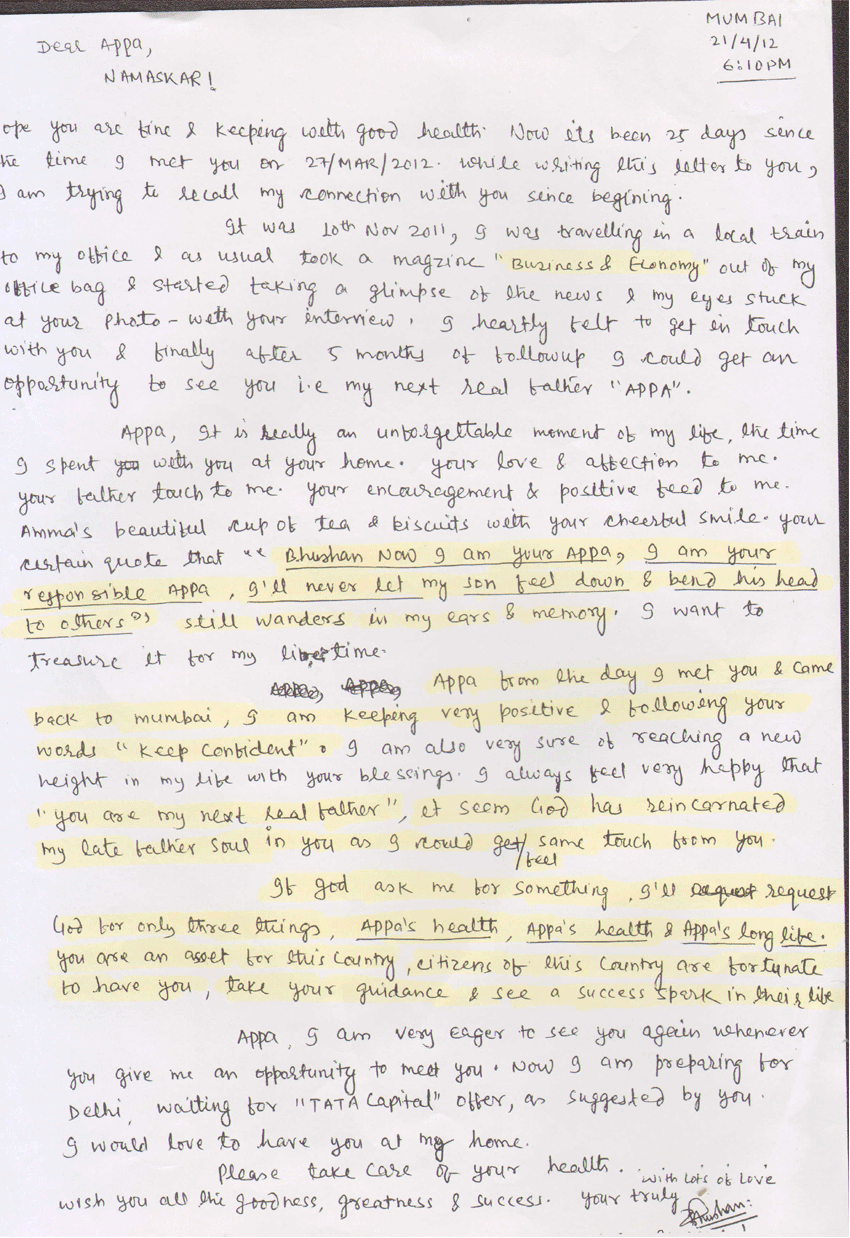 MUMBAI
21/4/12
6:10PM
Dear Appa,
NAMASKAR!
ope you are fine & keeping with good health. Now its been 25 days since
he time I met you on 27/MAR/2012. While writing this letter to you,
I am trying to recall my connection with you since begining.
It was 10th Nov 2011, I was travelling in a local train
to my office & as usual took a magzine "Business & Economy" out of my
office bag & started taking a glimpse of the news & my eyes stuck
at your photo - with your interview. I heartly felt to get in touch
with you & finally after 5 months of followup I could get an
opportunity to see you i.e my next real father "APPA".
Appa, It is really an unforgettable moment of my life, the time
I spent you with you at your home. your love & affection to me.
your father touch to me. your encouragement & positive feed to me.
Amma's beautiful cup of tea & biscuits with your cheerful smile. your
certain quote that "Bhushan Now I am your Appa, I am your
responsible Appa, I'll never let my son feel down & bend his head
to others" still wanders in my ears & memory. I want to
treasure it for my time.
Appa, Appa, Appa from the day I met you & came
back to mumbai, I am keeping very positive & following your
words "keep confident". I am also very sure of reaching a new
height in my life with your blessings. I always feel very happy that
"you are my next real father", it seem God has reincarnated
my late father soul in you as I could get/feel same touch from you.
If god ask me for something, I'll request request
God for only three things, Appa's health, Appa's health & Appa's long life.
you are an asset for this country, citizens of this country are fortunate
to have you, take your guidance & see a success spark in their life
Appa, I am very eager to see you again whenever
you give me an opportunity to meet you. Now I am preparing for
Delhi, waiting for "TATA Capital" offer, as suggested by you.
I would love to have you at my home.
Please take care of your health.
wish you all the goodness, greatness & success.
with lots of love
your truly
Bhushan